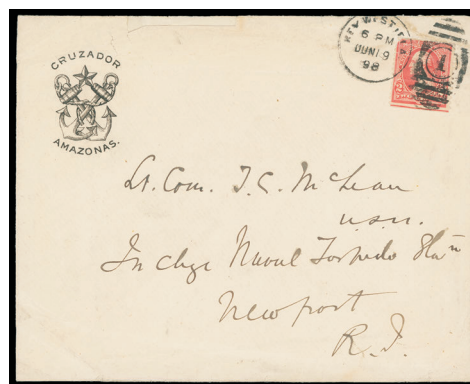 CRUZADOR
AMAZONAS.
KEY WEST
6 PM
JUN 19
98
1
Lt. Com. T. C. McLean
U.S.N.
In chge Naval Torpedo Stan
Newport
R.I.